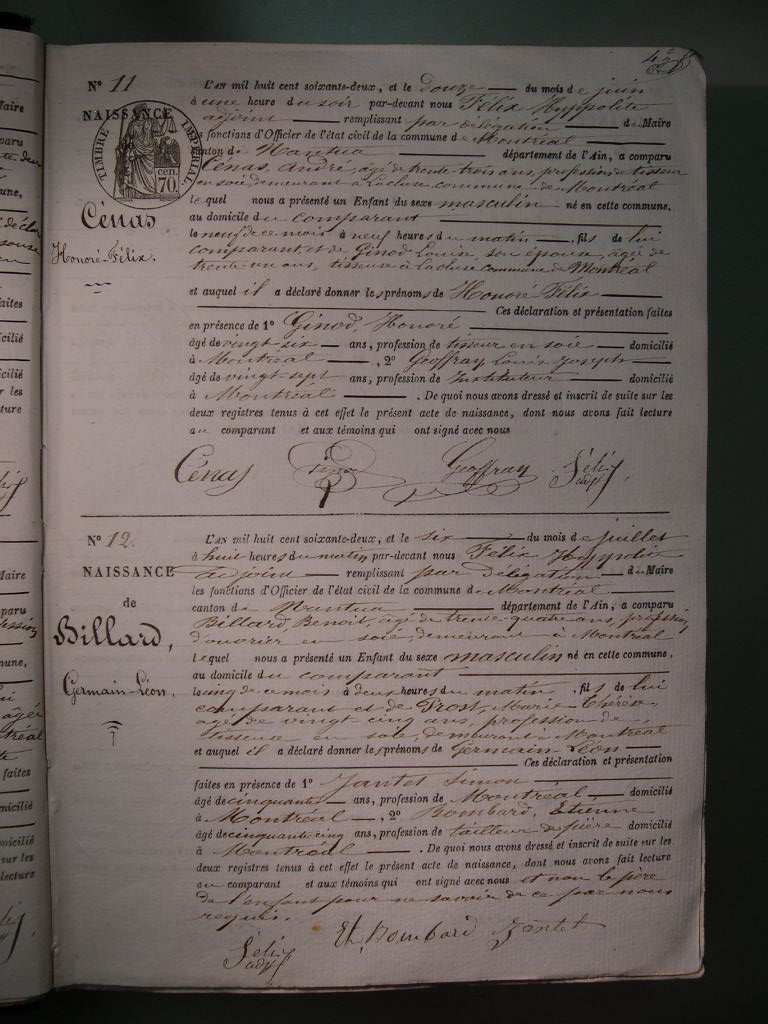 N° 11
NAISSANCE
TIMBRE IMPERIAL
70 cen.
Cénas
Honoré-Félix.
L'AN mil huit cent soixante-deux, et le Douze du mois de juin
à une heure du soir par-devant nous Félix Hyppolite
adjoint remplissant par délégation de Maire
les fonctions d'Officier de l'état civil de la commune de Montréal
canton de Nantua département de l'Ain, a comparu
Cénas André, agé de trente trois ans, profession de tisseur
en soie demeurant à Lacluse commune de Montréal
le quel nous a présenté un Enfant du sexe masculin né en cette commune,
au domicile du comparant
le neuf de ce mois à neuf heures du matin, fils de lui
comparant et de Ginod Louise, son épouse, agée de
trente un ans, tisseuse à Lacluse commune de Montréal
et auquel il a déclaré donner les prénoms de Honoré Félix
Ces déclaration et présentation faites
en présence de 1° Ginod, Honoré
âgé de vingt-six ans, profession de tisseur en soie domicilié
à Montréal, 2° Geoffray Louis Joseph
âgé de vingt sept ans, profession de Instituteur domicilié
à Montréal. De quoi nous avons dressé et inscrit de suite sur les
deux registres tenus à cet effet le présent acte de naissance, dont nous avons fait lecture
au comparant et aux témoins qui ont signé avec nous
Cénas Ginod Geoffray Félix adj.
N° 12.
NAISSANCE
de
Billard,
Germain-Léon.
L'AN mil huit cent soixante-deux, et le six du mois de juillet
à huit heures du matin par-devant nous Félix
adjoint remplissant par délégation du Maire
les fonctions d'Officier de l'état civil de la commune de Montréal
canton de Nantua département de l'Ain, a comparu
Billard, Benoit, agé de trente-quatre ans, profession
d'ouvrier en soie, demeurant à Montréal
lequel nous a présenté un Enfant du sexe masculin né en cette commune,
au domicile du comparant
le cinq de ce mois à deux heures du matin, fils de lui
comparant et de Prost, Marie-Thérèse
agée de vingt-cinq ans, profession de
tisseuse en soie, demeurant à Montréal
et auquel il a déclaré donner les prénoms de Germain-Léon
Ces déclaration et présentation
faites en présence de 1° Jantet Simon
âgé de cinquante ans, profession de Montréal domicilié
à Montréal, 2° Bombard, Etienne
âgé de cinquante cinq ans, profession de tailleur de pierre domicilié
à Montréal. De quoi nous avons dressé et inscrit de suite sur les
deux registres tenus à cet effet le présent acte de naissance, dont nous avons fait lecture
au comparant et aux témoins qui ont signé avec nous et non le père
de l'enfant pour ne savoir de ce par nous
requis.
Et. Bombard Jantet
Félix adj.